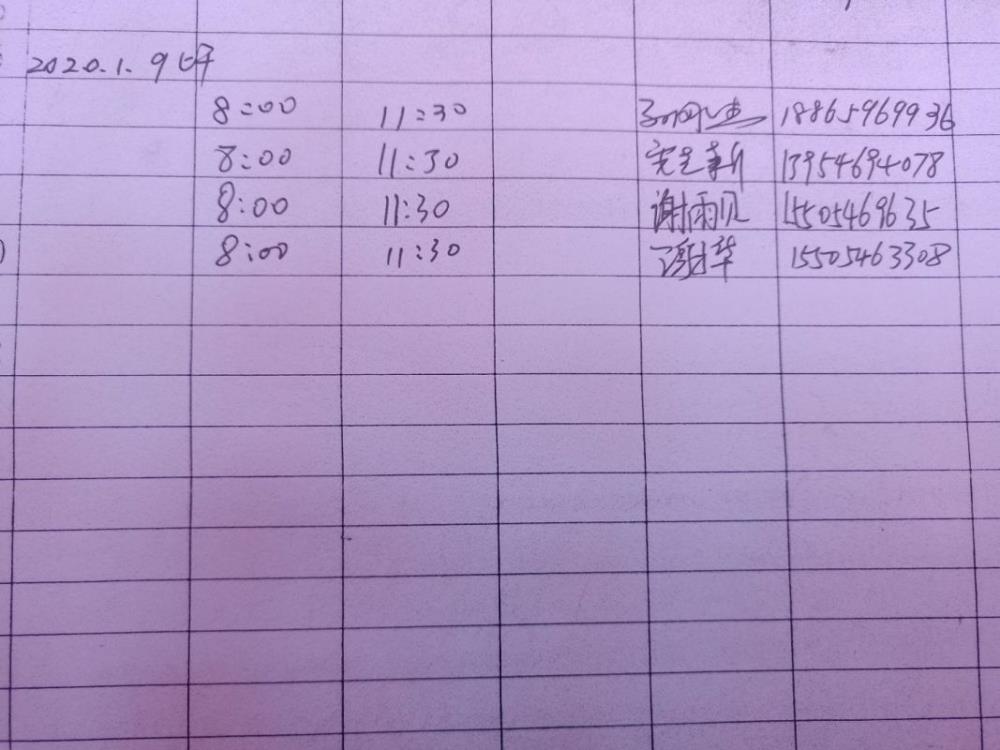 2020.1.9
8:00 11:30 18865969936
8:00 11:30 13954694078
8:00 11:30 谢雨贝 15505469635
8:00 11:30 谢华 15505463308